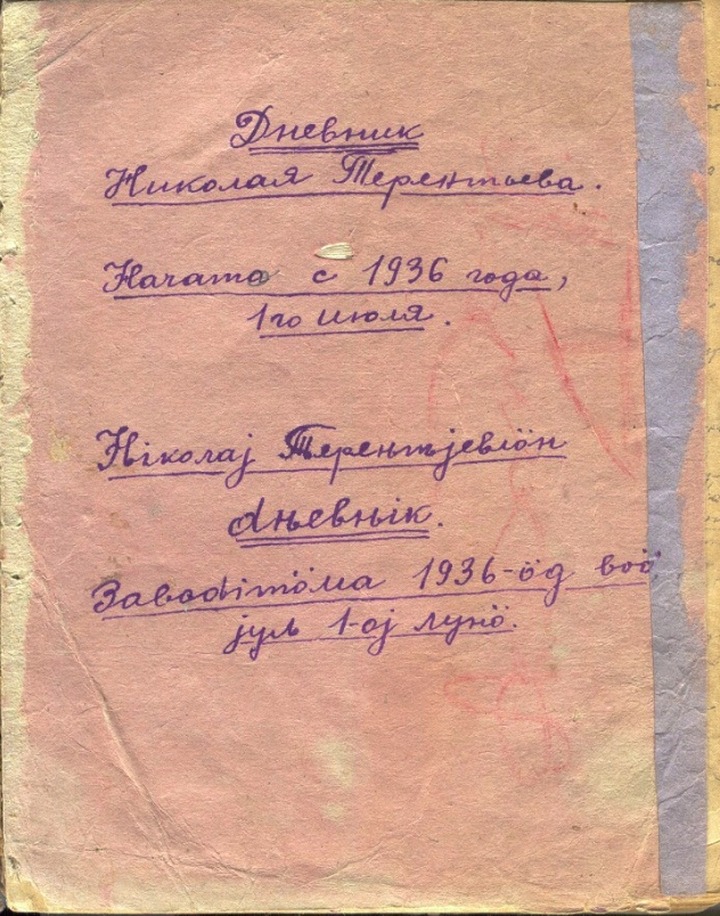 Дневник
Николая Терентьева.
Начато с 1936 года,
1го июля.
Ніколај Терентјевлӧн
ԃԋевԋік.
Завоԃітӧма 1936-ӧд воӧ
јуԉ 1-ој лунӧ.